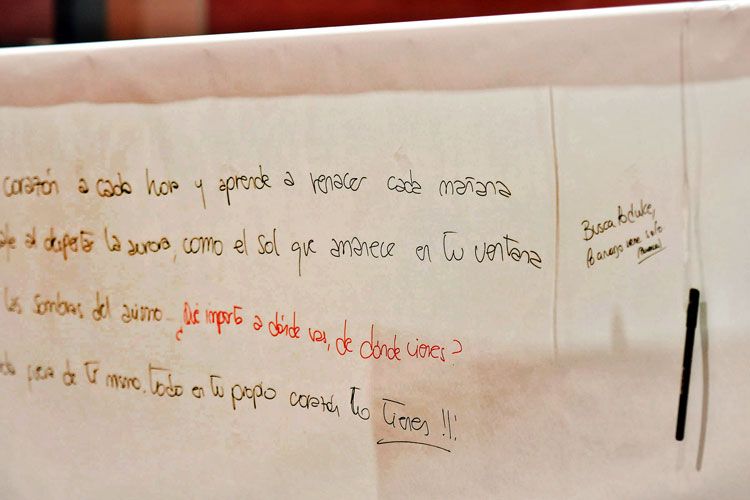 corazón a cada hora y aprende a renacer cada mañana
al despertar la aurora, como el sol que amanece en tu ventana
las sombras del abismo. ¿Qué importa a dónde vas, de dónde vienes?
fuera de ti mismo. todo en tu propio corazón tú tienes!!!
Busca lo dulce,
lo amargo viene solo